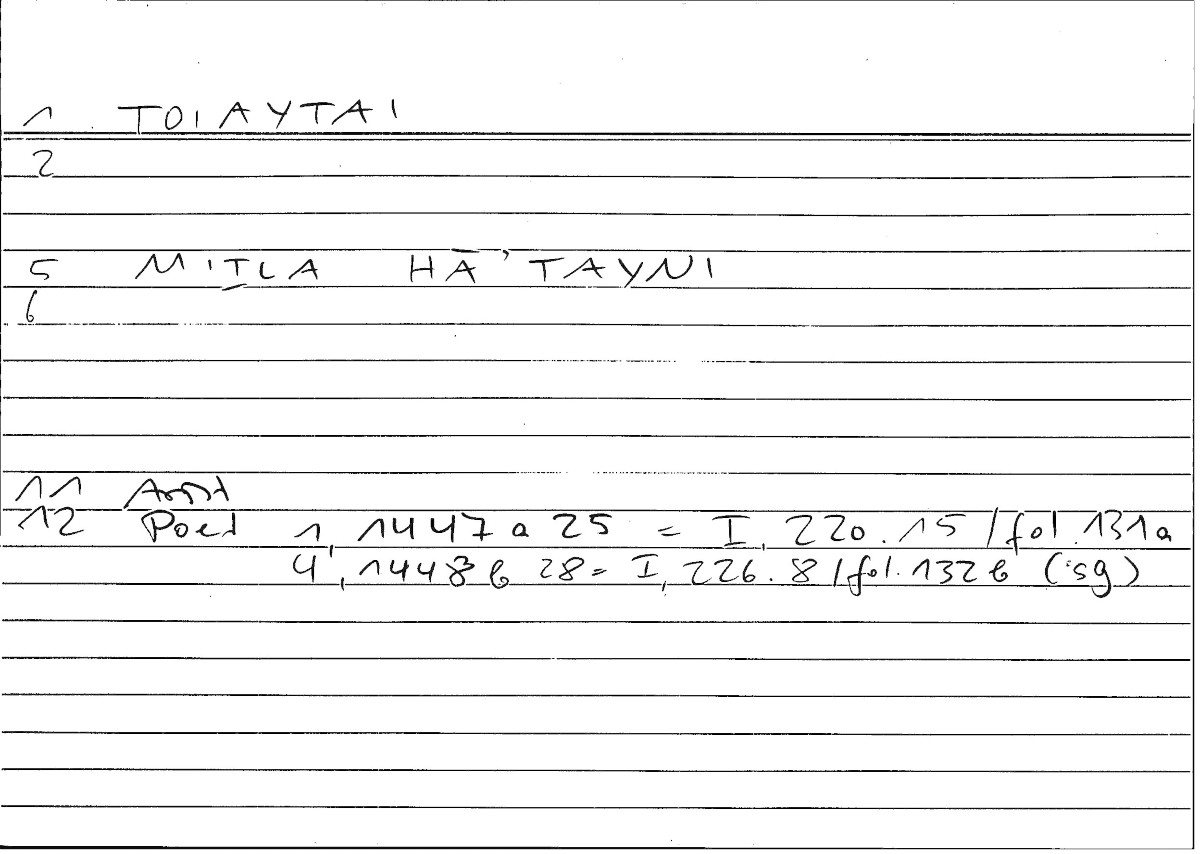 1 TOIAYTAI
2
5 MIṮLA HĀʾTAYNI
6
11 Arist
12 Poet 1, 1447a25 = I, 220.15 / fol. 131a
4, 1448b28 = I, 226.8 / fol. 132b (sg)